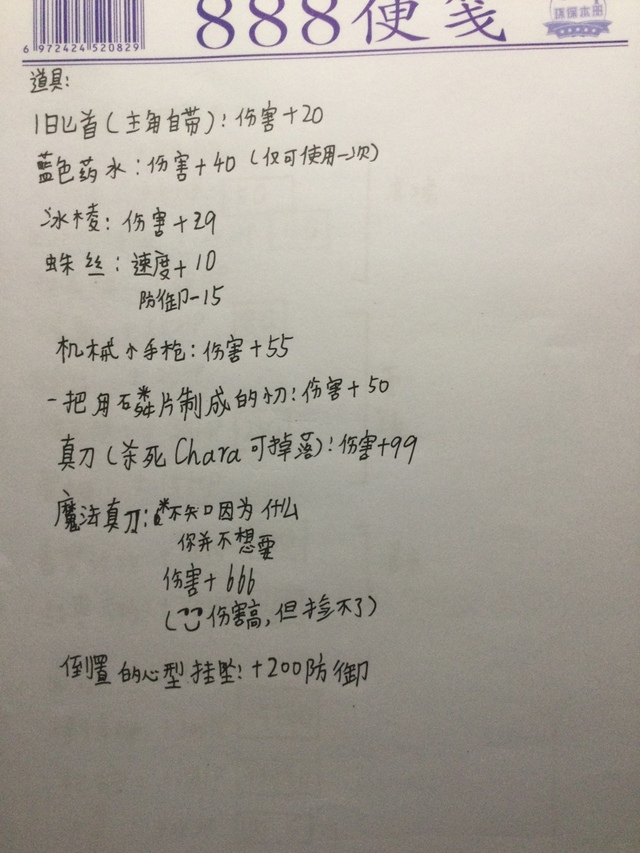 6 972424 520829
888便笺
环保本册
道具:
旧匕首(主角自带):伤害+20
蓝色药水:伤害+40(仅可使用一次)
冰棱:伤害+29
蛛丝:速度+10
防御-15
机械小手枪:伤害+55
一把用磷片制成的刀:伤害+50
真刀(杀死Chara可掉落):伤害+99
魔法真刀:*不知口因为什么
你并不想要
伤害+666
(伤害高,但捡不了)
倒置的心型挂坠:+200防御